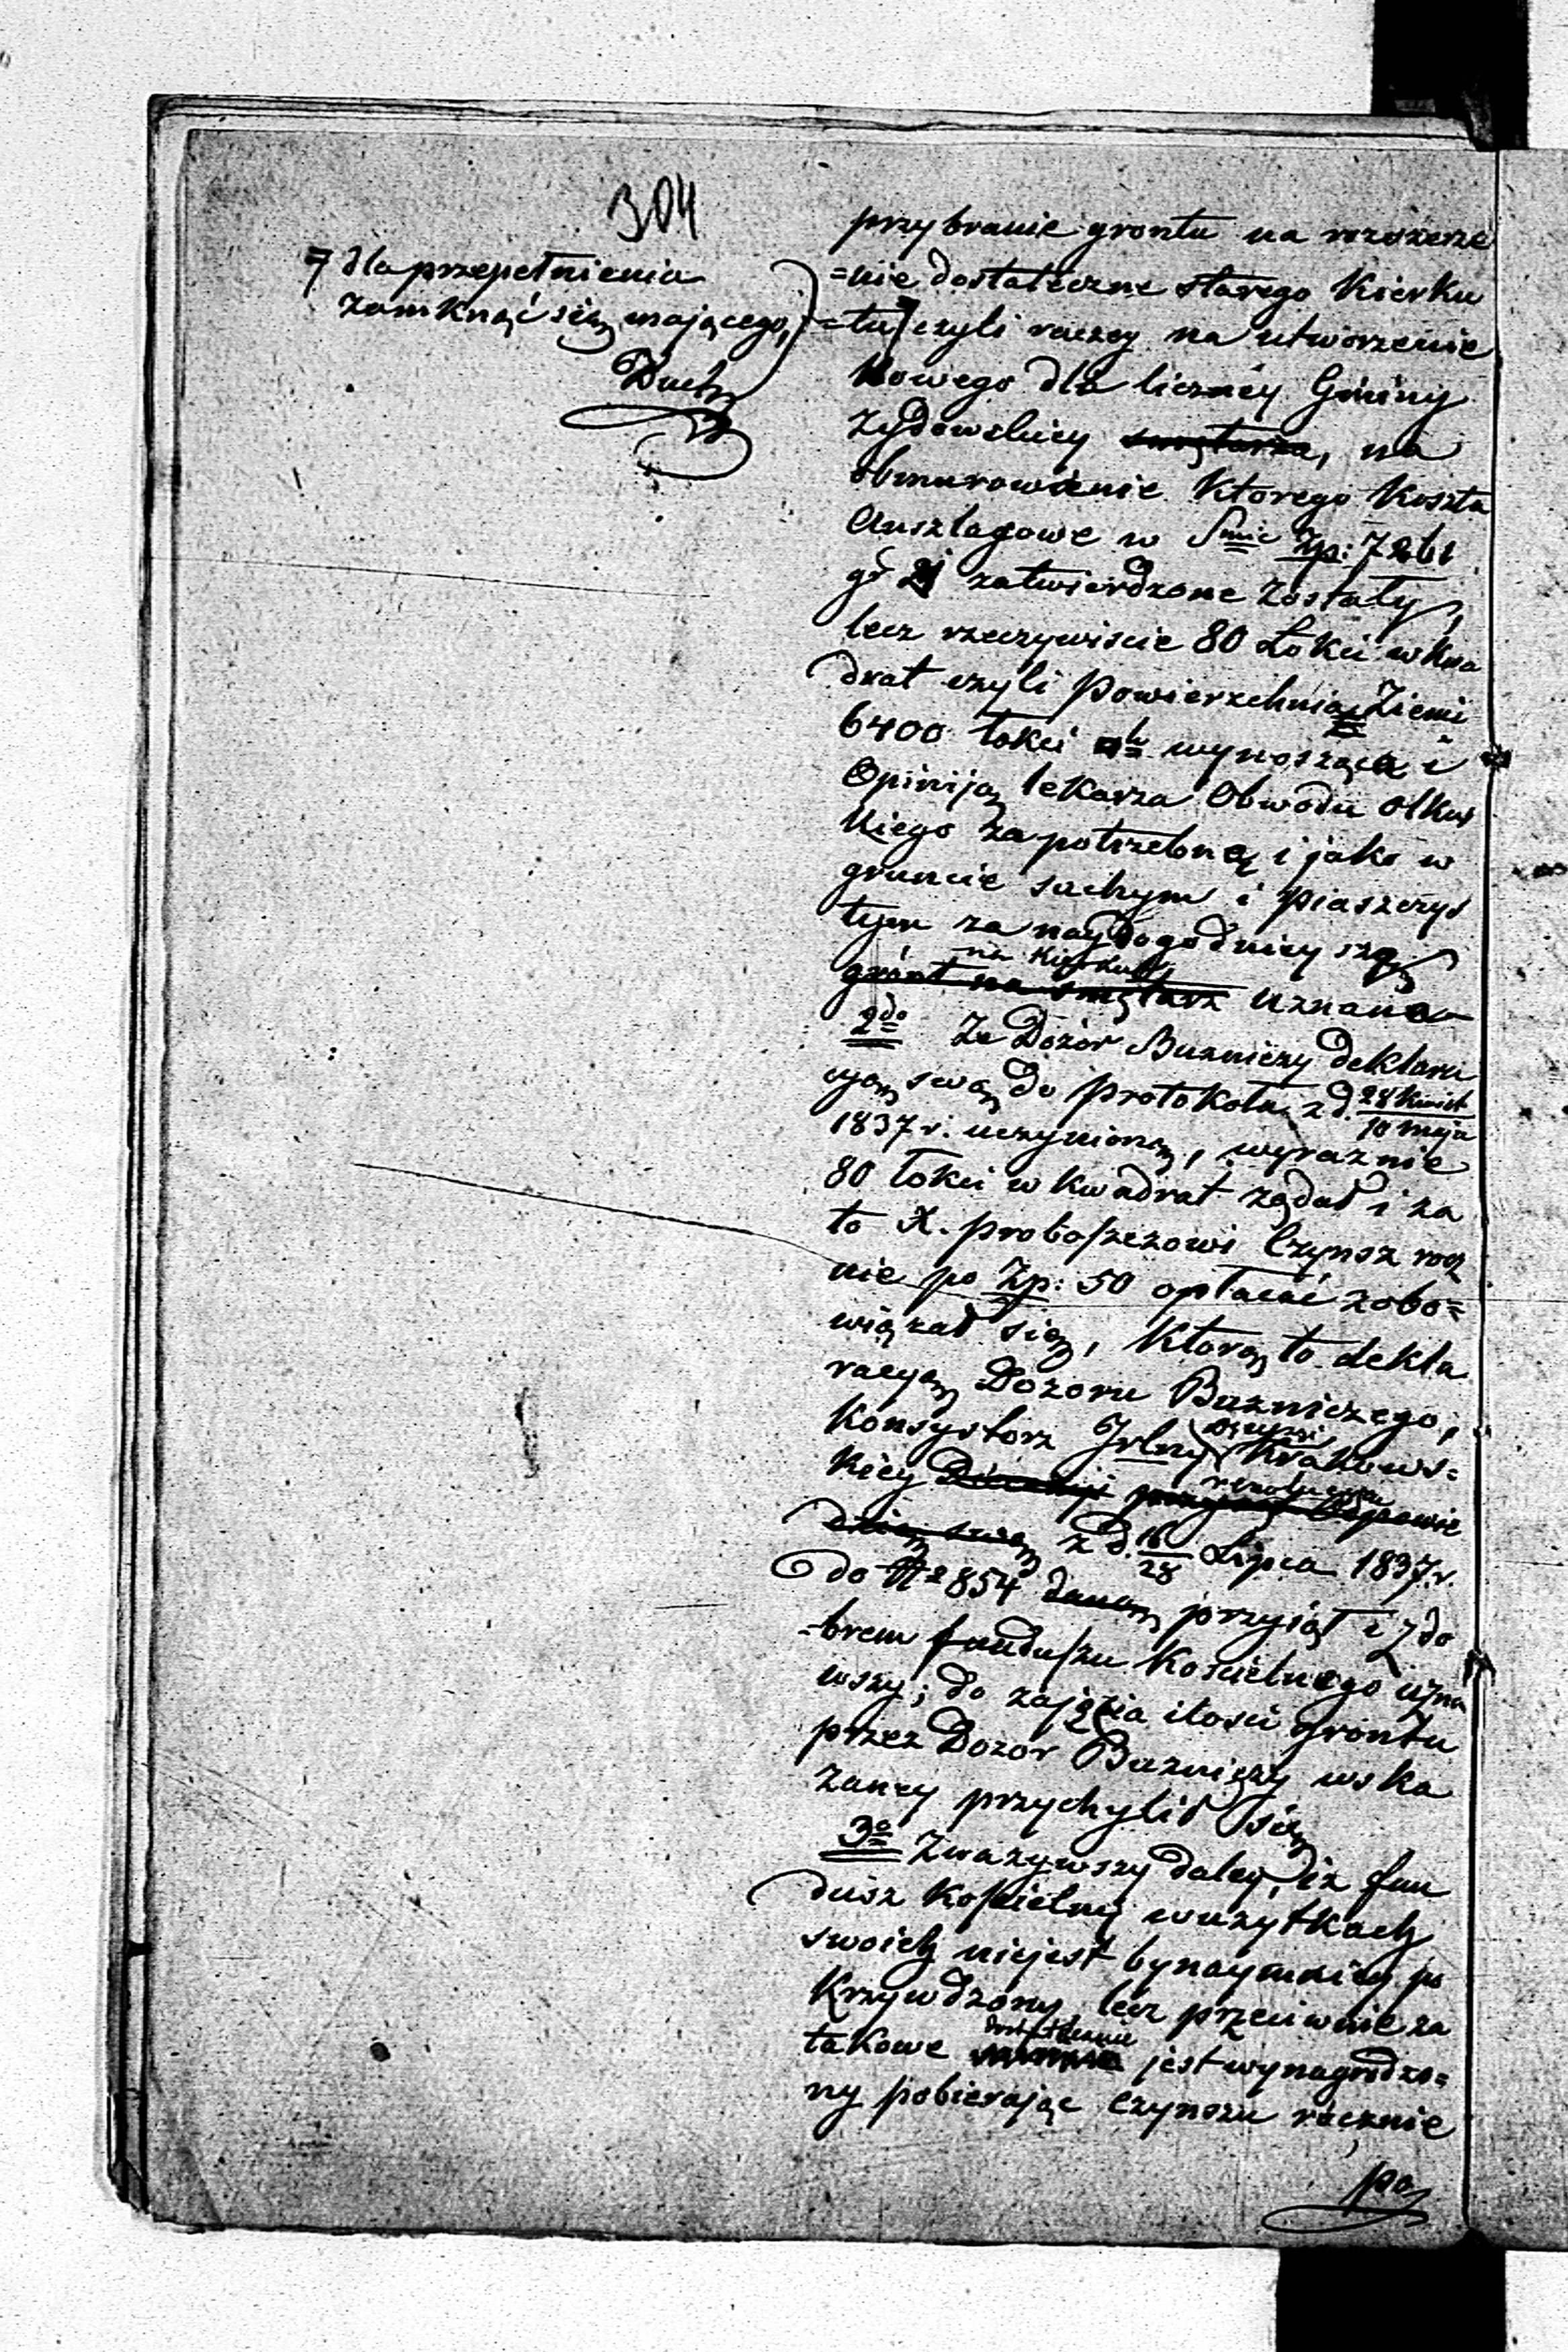 304
7 dla przepełnienia
zamknąć się mającego,
przybranie grontu na rozszerze
=nie dostateczne starego Kierku
=tu 7 czyli raczey na utworzenie
Nowego dla liczney Gminy
Zydowskiey smętarza, na
obmurowanie Ktorego Koszta
Anszlagowe w Smie Zp: 7261
gr 21 zatwierdzone zostały,
lecz rzeczywiscie 80 Łokci w kwa
drat czyli powierzchnią Ziemi
6400 łokci wynosząca i
Opiniją lekarza Obwodu Olkus
Kiego za potrzebną i jako w
gruncie suchym i piaszczys
tym za naydogodnieyszą
na Kierkut
gront na smętarz uznana
2do Ze Dozór Bużniczy deklara
cyą swą do protokołu z d. 28 Kwiet
10 Maja
1837 r. uczynioną, wyraznie
80 łokci w kwadrat żądał i za
to X. proboszczowi Czynsz rocz
nie po Zp: 50 opłacać zobo=
wiązał się, Ktorą to dekla
racyą Dozoru Bużniczego,
Konsystorz Jrlny Krakows=
kiey
z d. 16/28 Lipca 1837 r.
do N 2854 daną przyiął i z do
=brem funduszu Koscielnego uzna
wszy; do zajęcia ilosci grontu
przez Dozor Bużniczy wska
zaney przychylił się
3o Zważywszy daley, iż fun
dusz Koscielny w użytkach
swoich niejest bynaymniey po
Krzywdzony, lecz przeciwnie za
takowe jest wynagrodzo=
ny pobierając czynszu rocznie
po